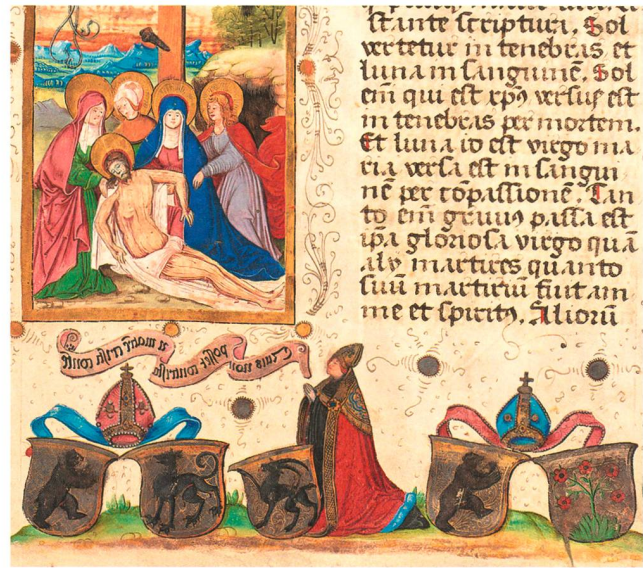 stante scriptura. Sol
vertetur in tenebras et
luna in sanguinē. Sol
em qui est xp̄ꝯ versus est
in tenebras per mortem
Et luna id est virgo ma
ria versa est in sangui
nē per cōpassionē. Tan
to em̄ graviꝯ passa est
ip̄a gloriosa virgo quā
alij martires quanto
suū martiriū fuit am
me et spiritꝯ. Aliorū